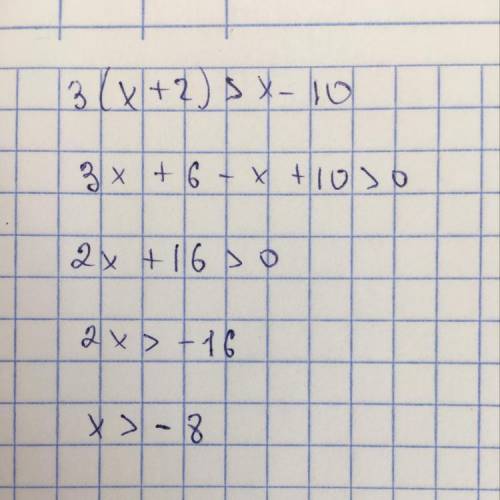 3(x+2)>x-10
3x+6-x+10>0
2x+16>0
2x>-16
x>-8